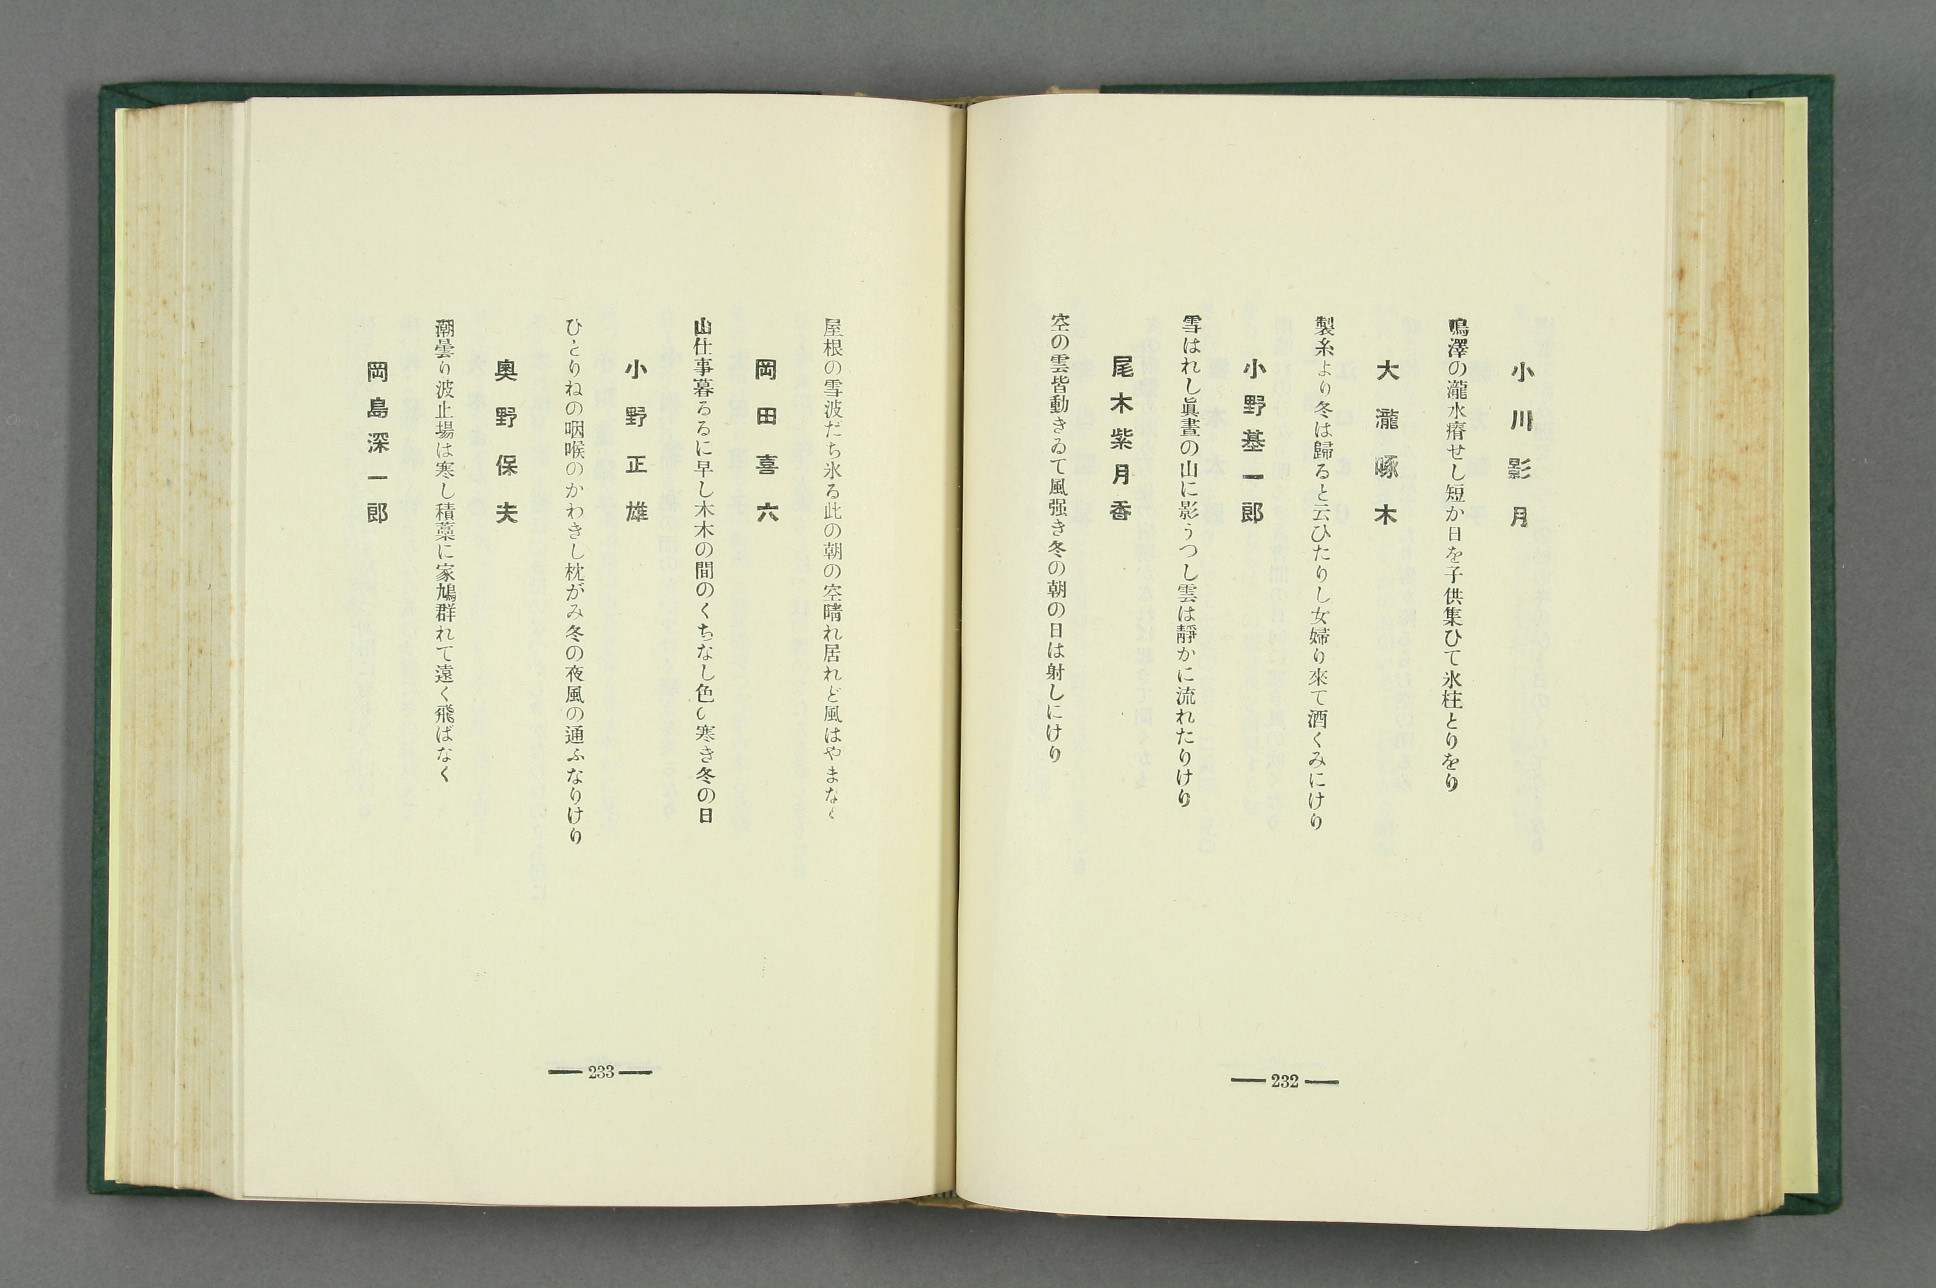 小川影月
鳴澤の瀧水瘠せし短か日を子供集ひて氷柱とりをり
大瀧啄木
製糸より冬は歸ると云ひたりし女婦り來て酒くみにけり
小野基一郎
雪はれし眞晝の山に影うつし雲は靜かに流れたりけり
尾木紫月香
空の雲皆動きゐて風强き冬の朝の日は射しにけり
232
屋根の雪波だち氷る此の朝の空晴れ居れど風はやまなく
岡田喜六
山仕事暮るるに早し木木の間のくちなし色の寒き冬の日
小野正雄
ひとりねの咽喉のかわきし枕がみ冬の夜風の通ふなりけり
奥野保夫
潮曇り波止場は寒し積藁に家鳩群れて遠く飛ばなく
岡島深一郎
233